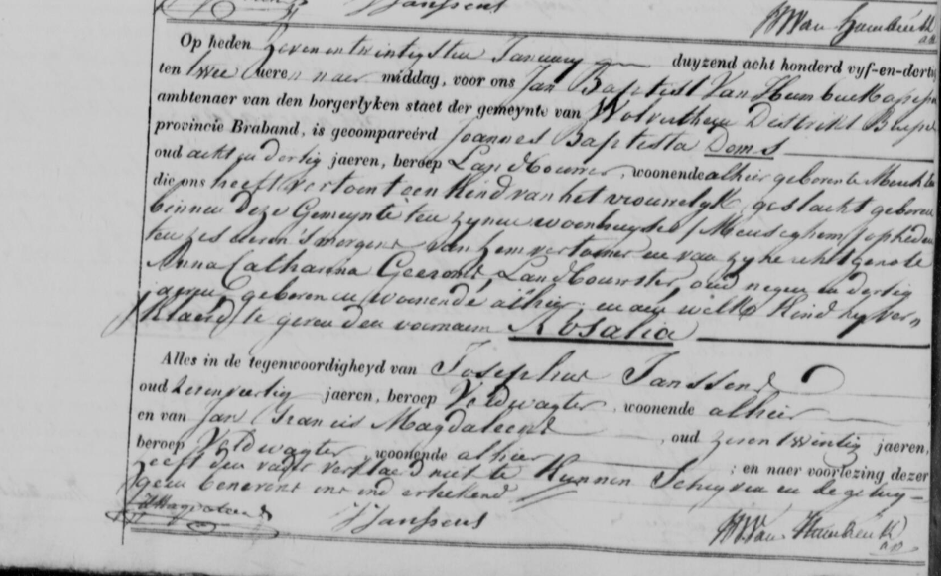 Janssens
Op heden zevenentwintigsten January duyzend acht honderd vyf-en-dertig
ten twee ueren naer middag, voor ons Jan Baptist Van
ambtenaer van den borgerlyken staet der gemeynte van Wolverthem Distrikt
provincie Braband, is gecompareérd Joannes Baptista Doms
oud acht en dertig jaeren, beroep Landbouwer, woonende alhier geboren te
die ons heeft vertoent een kind van het vrouwelyk geslacht geboren
binnen deze Gemeynte ten zynen woonhuyse / Meuseghem / op heden
ten zes ueren 's morgens van hem vertooner en van zyne echtgenote
Anna Catharina Landbouwster, oud negen en dertig
jaeren, geboren en woonende alhier, en aen welke kind hy
te geven den voornaem Rosalia
Alles in de tegenwoordigheyd van Josephus Janssens
oud jaeren, beroep Veldwagter, woonende alhier
en van Jan Francis Magdaleens, oud zeven twintig jaeren,
beroep Veldwagter, woonende alhier ; en naer voorlezing dezer
heeft den vader verklaerd niet te kunnen schryven en de getuy-
gen benevens ons onderteekend
Janssens